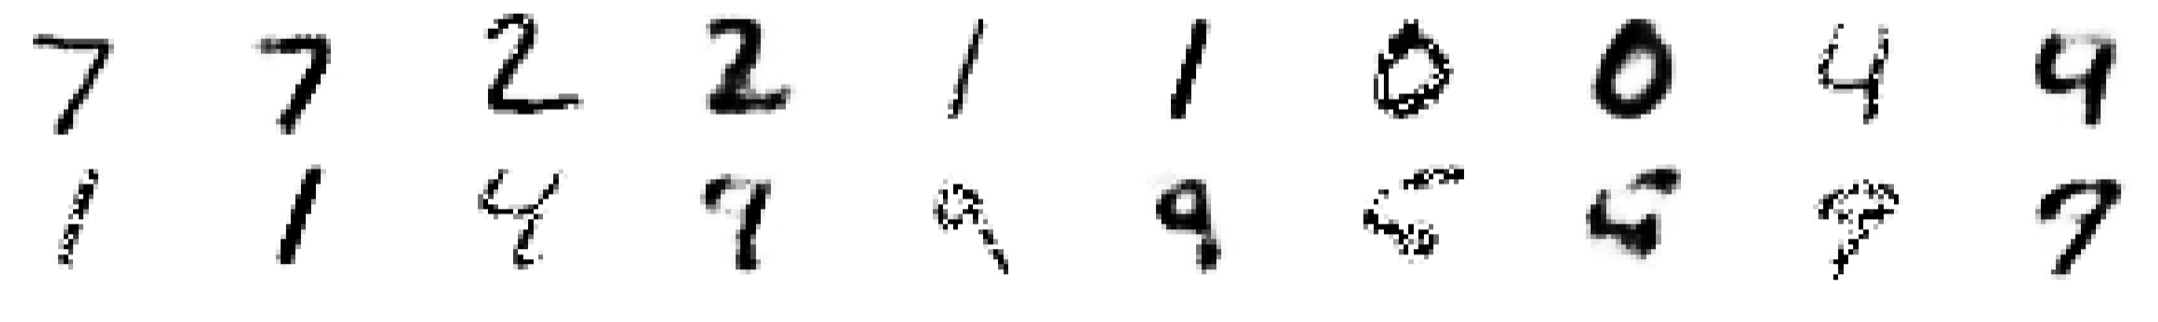 7 7 2 2 1 1 0 0 4 9
1 1 4 9 9 9 5 5 9 9